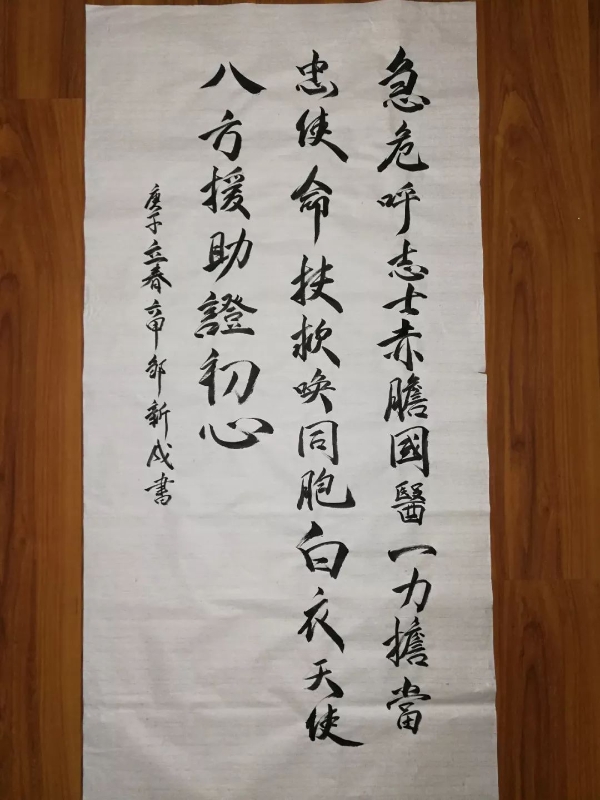 急危呼志士赤膽國醫一力擔當
忠使命扶救喚同胞白衣天使
八方援助證初心
庚子立春六甲鄒新成書